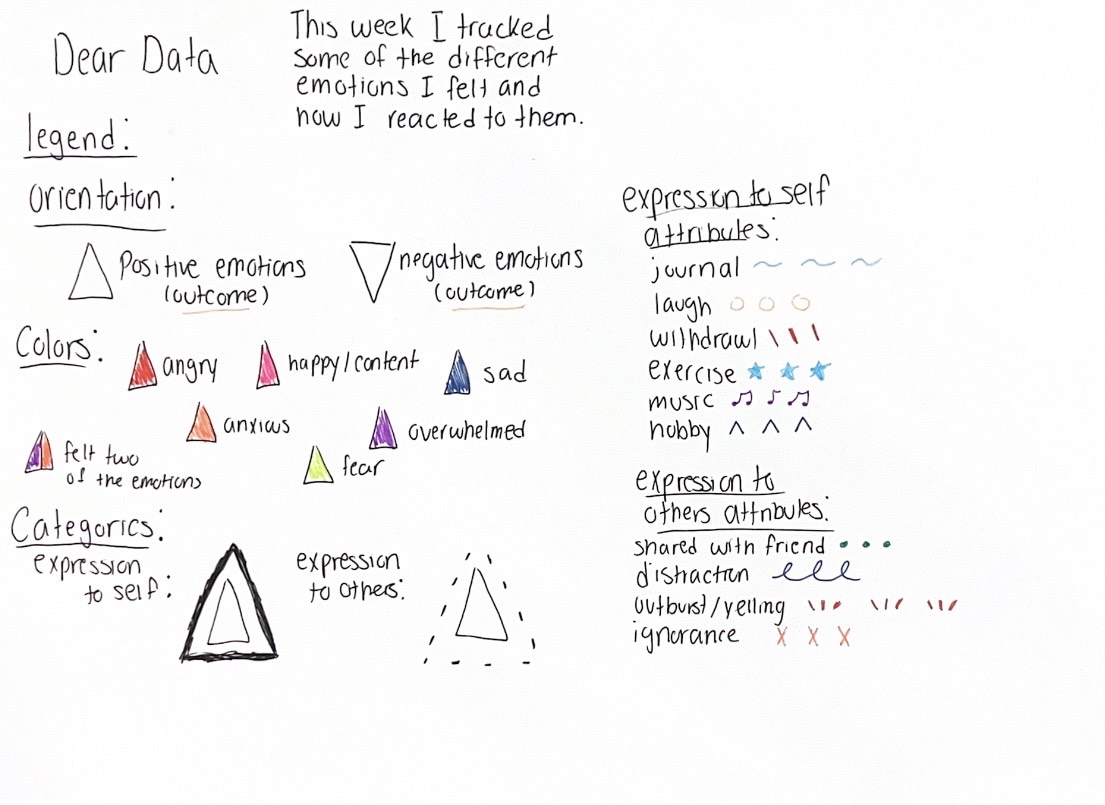 Dear Data
This week I tracked
some of the different
emotions I felt and
how I reacted to them.
legend:
orientation:
Positive emotions
(outcome)
negative emotions
(outcome)
Colors:
angry
happy/content
sad
anxious
overwhelmed
felt two
of the emotions
fear
Categories:
expression
to self:
expression
to others:
expression to self
attributes:
journal
laugh
withdrawl
exercise
music
hobby
expression to
others attributes:
shared with friend
distraction
outburst/yelling
ignorance